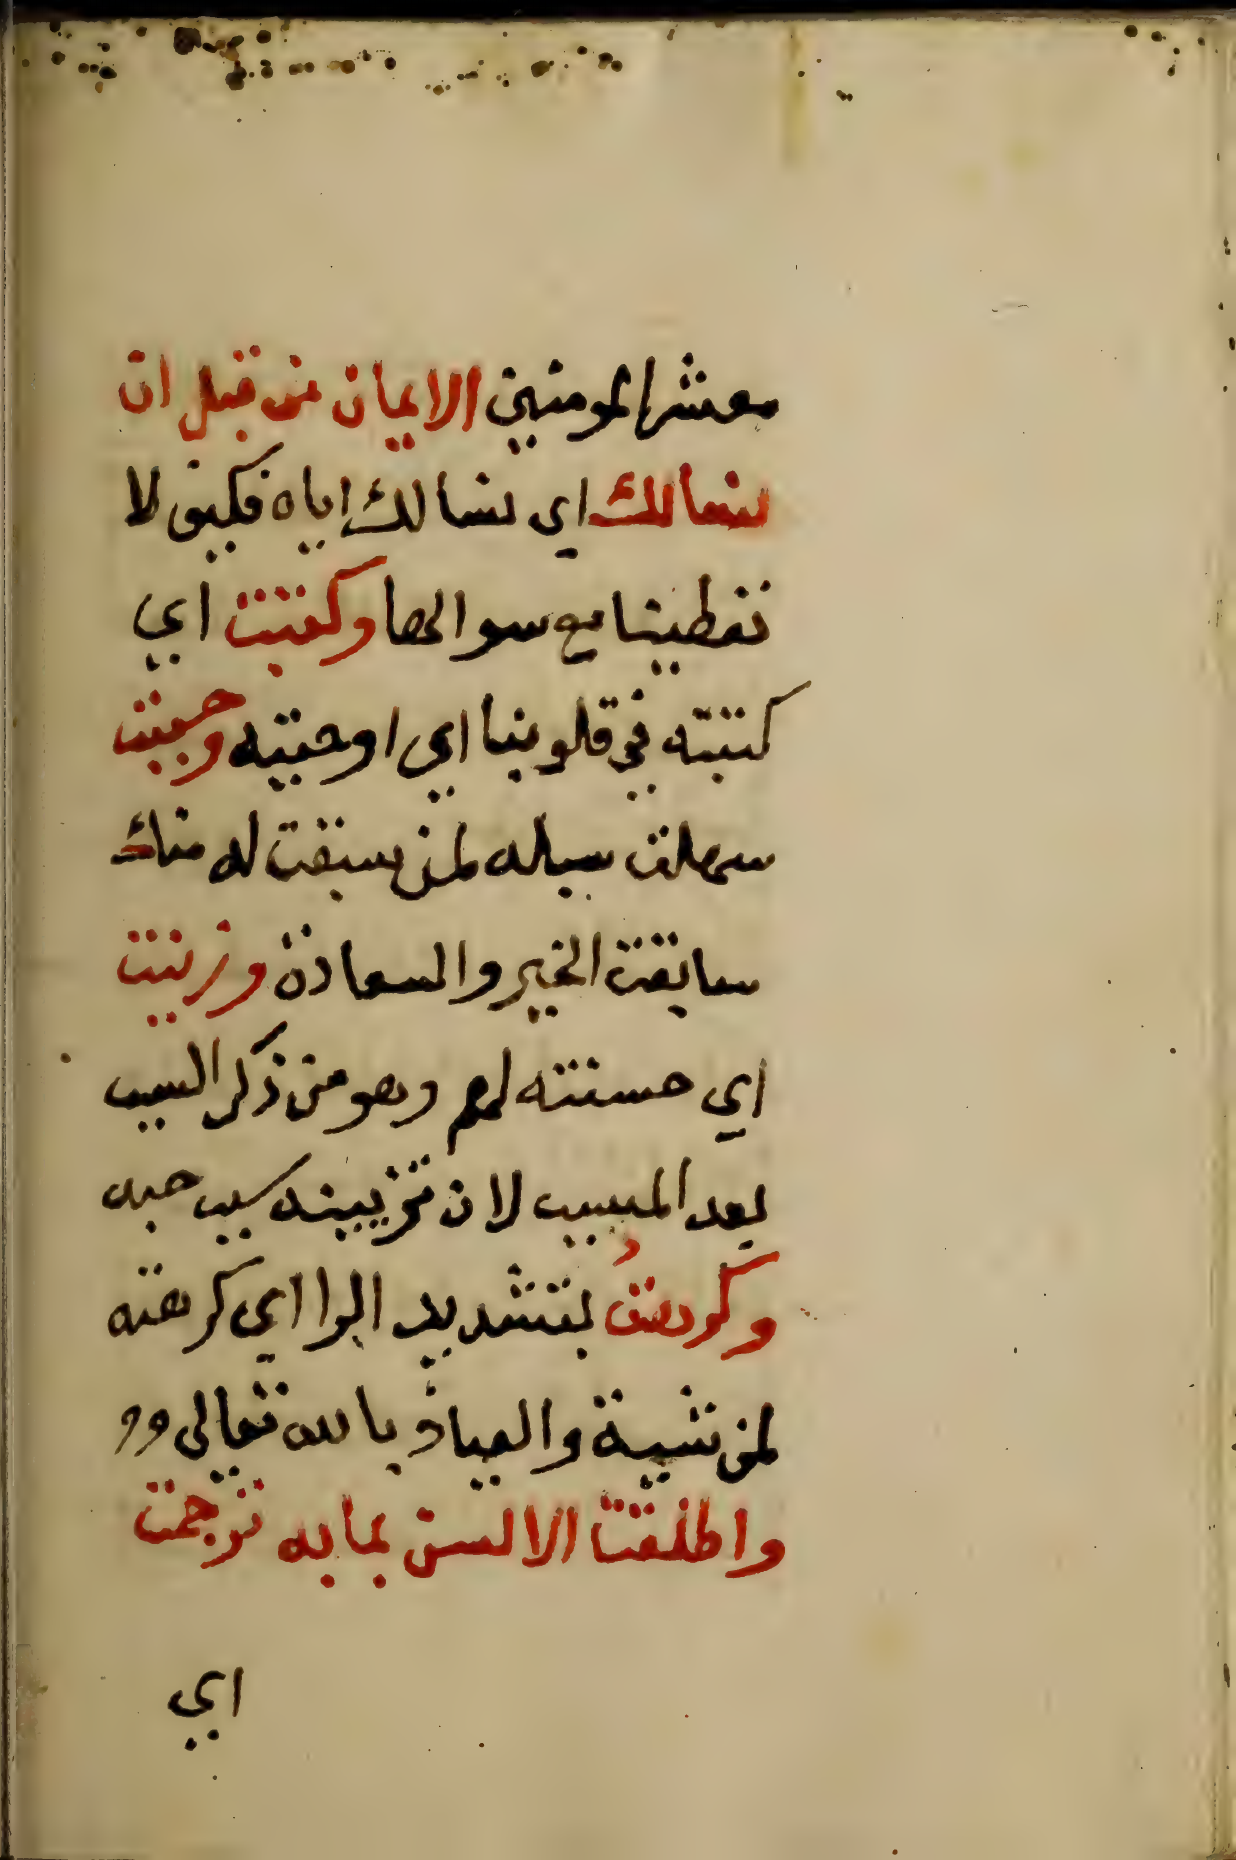 معشر المومنين الايمان من قبل ان
نسالك اي نسالك اياه فكيف لا
تعطينا مع سوالها وكتبت اي
كتبته في قلوبنا اي اوجبته وحببت
سهلت سبيله لمن سبقت له منك
سابقت الخير والسعادة وزينت
اي حسنته لهم وهو من ذكر السبب
بعد المسبب لان تزيينه سبب حبه
وكرهت بتشديد الرا اي كرهته
لمن شية والعياذ بالله تعالى
واطلقت الالسن بما به ترجمت
اي